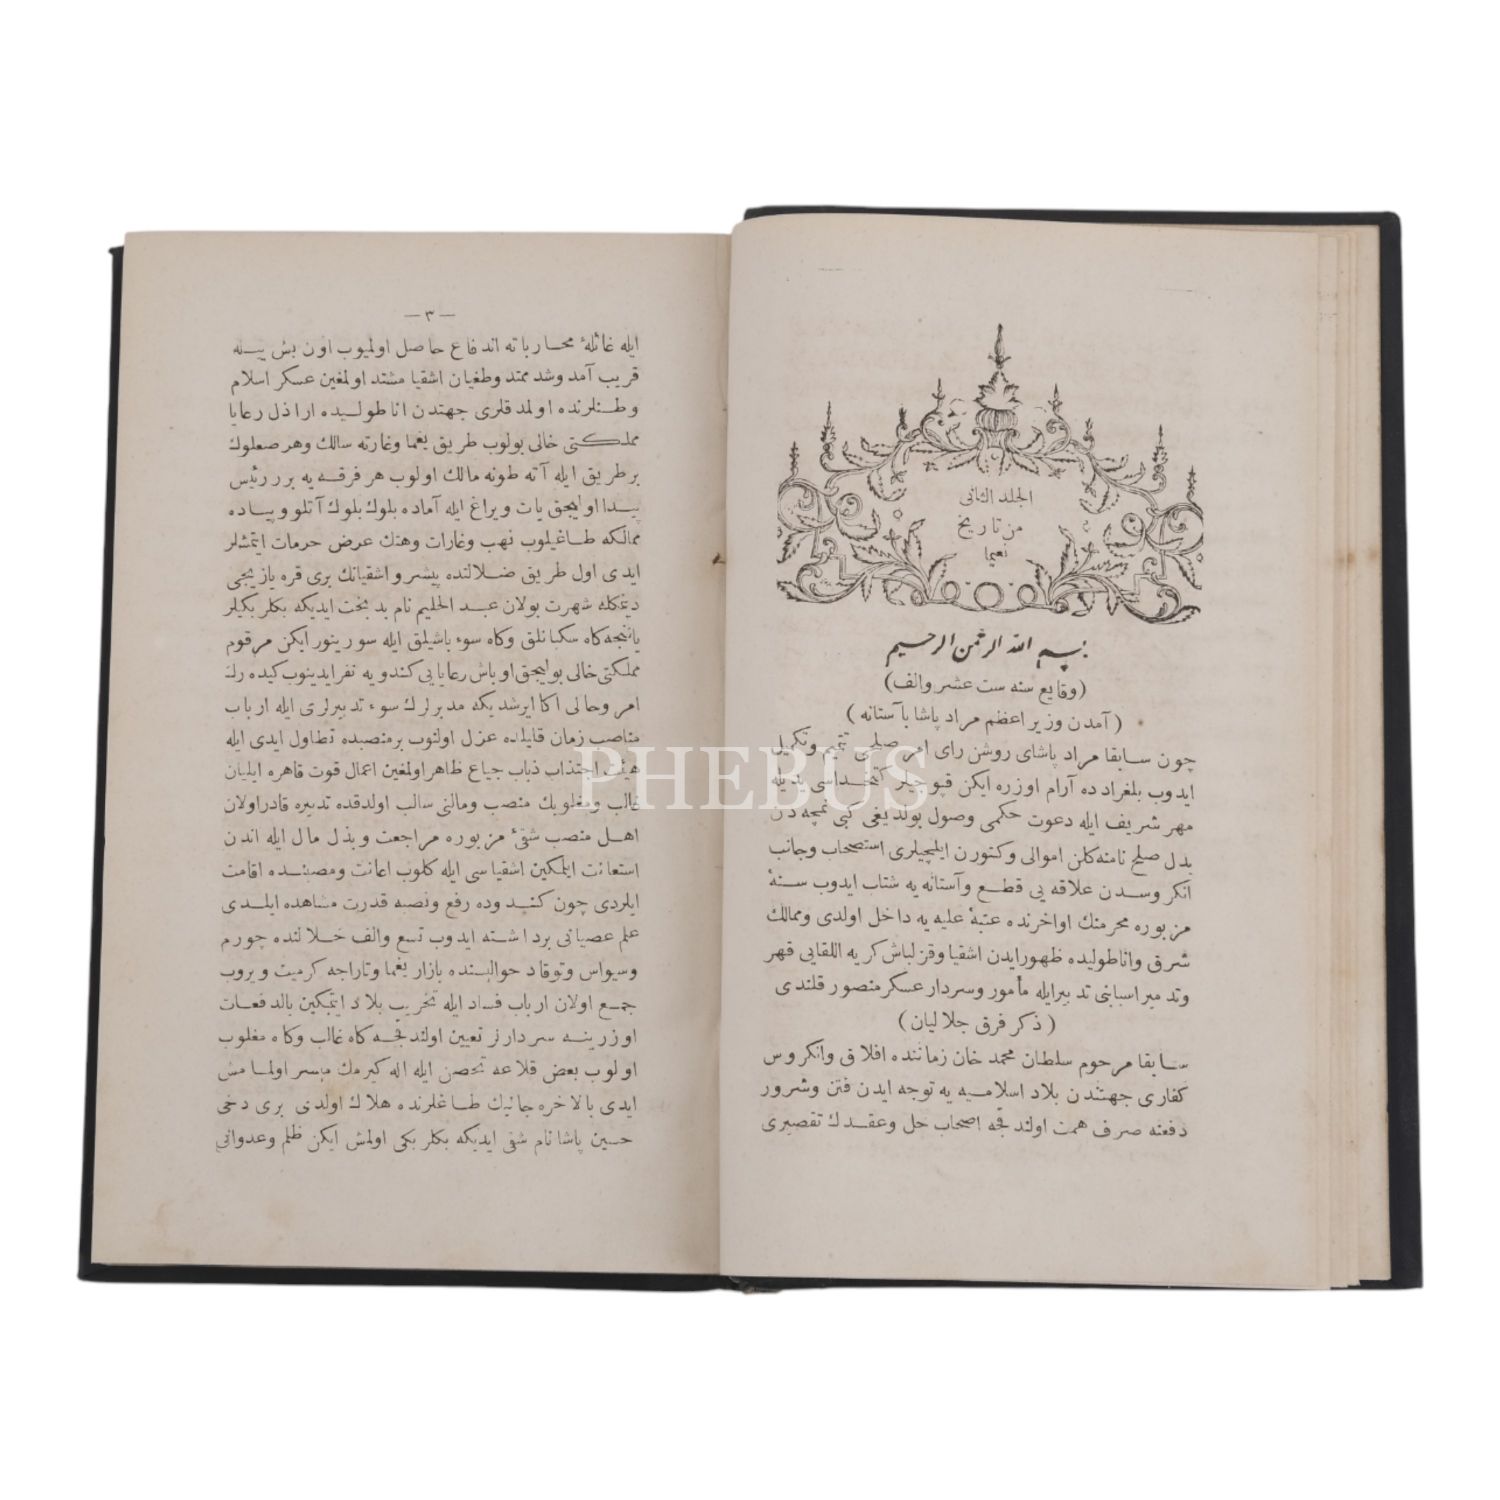 الجلد الثانى
من تاريخ
نعيما
بسم الله الرحمن الرحيم
(وقايع سنه ست عشر والف)
(آمدن وزير اعظم مراد پاشا بآستانه)
چون سابقا مراد پاشاى روشن راى امر صلحى تتميم وتكميل
ايدوب بلغراد ده آرام اوزره ايكن قپوجيلر كتخداسى يديله
مهر شريف ايله دعوت حكمى وصول بولديغى كبى نمچه دن
بدل صلح نامنه كلن اموالى وكتورن ايلچيلرى استصحاب وجانب
انكروسدن علاقه يى قطع وآستانه يه شتاب ايدوب سنۀ
مزبوره محرمنك اواخرنده عتبۀ عليه يه داخل اولدى وممالك
شرق واناطوليده ظهور ايدن اشقيا وقزلباش كريه اللقايى قهر
وتدمير اسبابنى تدبيرايله مأمور وسردار عسكر منصور قلندى
(ذكر فرق جلاليان)
سابقا مرحوم سلطان محمد خان زماننده افلاق وانكروس
كفارى جهتندن بلاد اسلاميه يه توجه ايدن فتن وشرور
دفعنه صرف همت اولندقجه اصحاب حل وعقدك تقصيرى
— ٣ —
ايله غائلۀ محارباته اندفاع حاصل اولميوب اون بش ييله
قريب آمد وشد ممتد وطغيان اشقيا مشتد اولمغين عسكر اسلام
وطنلرنده اولمدقلرى جهتدن اناطوليده اراذل رعايا
مملكتى خالى بولوب طريق يغما وغارته سالك وهر صعلوك
برطريق ايله آته طونه مالك اولوب هر فرقه يه برر رئيس
پيدا اوليجق يات ويراغ ايله آماده بلوك بلوك آتلو وپياده
ممالكه طاغيلوب نهب وغارات وهتك عرض حرمات ايتمشلر
ايدى اول طريق ضلالنده پيشرو اشقيانك برى قره يازيجى
ديمكله شهرت بولان عبد الحليم نام بدبخت ايديكه بكلر بكيلر
ياننجه كاه سكبانلق وكاه سوء باشيلق ايله سورينور ايكن مرقوم
مملكتى خالى بوليجق اوباش رعايايى كندويه نفر ايدينوب كيده رك
امر وحالى اكا ايرشديكه مدبرلرك سوء تدبيرلرى ايله ارباب
مناصب زمان قليلده عزل اولنوب برمنصبده تطاول ايدى ايله
هيئت اجتذاب ذباب جياع ظاهر اولمغين اعمال قوت قاهره ايليان
غالب ومغلوبك منصب ومالنى سالب اولدقده تدبيره قادر اولان
اهل منصب شقئ مزبوره مراجعت وبذل مال ايله اندن
استعانت ايلمكين اشقياسى ايله كلوب اعانت ومصبنده اقامت
ايلردى چون كندوده رفع ونصبه قدرت مشاهده ايلدى
علم عصيانى برداشته ايدوب تسع والف خلالنده چورم
وسيواس وتوقاد حواليسنده بازار يغما وتاراجه كرميت ويروب
جمع اولان ارباب فساد ايله تخريب بلاد ايتمكين بالدفعات
اوزرينه سردارلر تعيين اولندقجه كاه غالب وكاه مغلوب
اولوب بعض قلاعه تحصن ايله اله كيرمك ميسر اولمامش
ايدى بالاخره جانيك طاغلرنده هلاك اولدى برى دخى
حسين پاشا نام شقى ايديكه بكلر بكى اولمش ايكن ظلم وعدوانى
PHEBUS